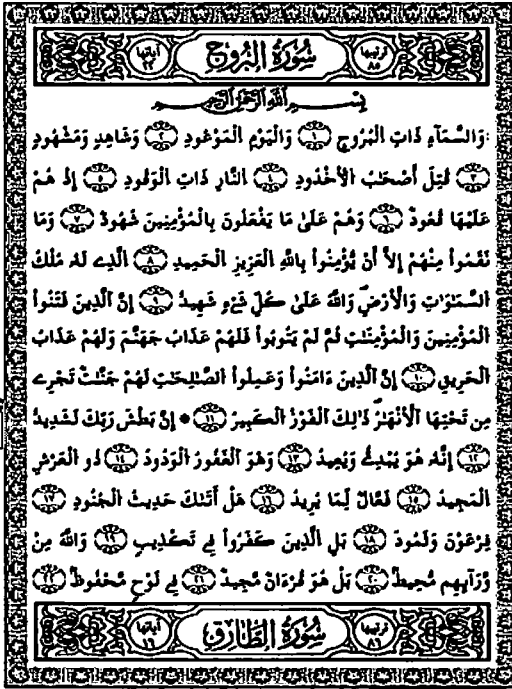 ترتيبها ٨٥ سُورَةُ الْبُرُوجِ آياتها ٢٢
بِسْمِ اللَّهِ الرَّحْمَٰنِ الرَّحِيمِ
وَالسَّمَآءِ ذَاتِ الْبُرُوجِ ١ وَالْيَوْمِ الْمَوْعُودِ ٢ وَشَاهِدٍ وَمَشْهُودٍ
٣ قُتِلَ أَصْحَٰبُ الْأُخْدُودِ ٤ النَّارِ ذَاتِ الْوَقُودِ ٥ إِذْ هُمْ
عَلَيْهَا قُعُودٌ ٦ وَهُمْ عَلَىٰ مَا يَفْعَلُونَ بِالْمُؤْمِنِينَ شُهُودٌ ٧ وَمَا
نَقَمُواْ مِنْهُمْ إِلَّا أَنْ يُّؤْمِنُواْ بِاللَّهِ الْعَزِيزِ الْحَمِيدِ ٨ الَّذِے لَهُ مُلْكُ
السَّمَٰوَٰتِ وَالْأَرْضِ وَاللَّهُ عَلَىٰ كُلِّ شَےْءٍ شَهِيدٌ ٩ إِنَّ الَّذِينَ فَتَنُواْ
الْمُؤْمِنِينَ وَالْمُؤْمِنَٰتِ ثُمَّ لَمْ يَتُوبُواْ فَلَهُمْ عَذَابُ جَهَنَّمَ وَلَهُمْ عَذَابُ
الْحَرِيقِ ١٠ إِنَّ الَّذِينَ ءَامَنُواْ وَعَمِلُواْ الصَّٰلِحَٰتِ لَهُمْ جَنَّٰتٌ تَجْرِے
مِن تَحْتِهَا الْأَنْهَٰرُ ذَٰلِكَ الْفَوْزُ الْكَبِيرُ ١١ * إِنَّ بَطْشَ رَبِّكَ لَشَدِيدٌ
١٢ إِنَّهُ هُوَ يُبْدِئُ وَيُعِيدُ ١٣ وَهُوَ الْغَفُورُ الْوَدُودُ ١٤ ذُو الْعَرْشِ
الْمَجِيدُ ١٥ فَعَّالٌ لِّمَا يُرِيدُ ١٦ هَلْ أَتَىٰكَ حَدِيثُ الْجُنُودِ ١٧
فِرْعَوْنَ وَثَمُودَ ١٨ بَلِ الَّذِينَ كَفَرُواْ فِے تَكْذِيبٍ ١٩ وَاللَّهُ مِنْ
وَّرَآئِهِم مُّحِيطٌ ٢٠ بَلْ هُوَ قُرْءَانٌ مَّجِيدٌ ٢١ فِے لَوْحٍ مَّحْفُوظٌ ٢٢
ترتيبها ٨٦ سُورَةُ الطَّارِقِ آياتها ١٦